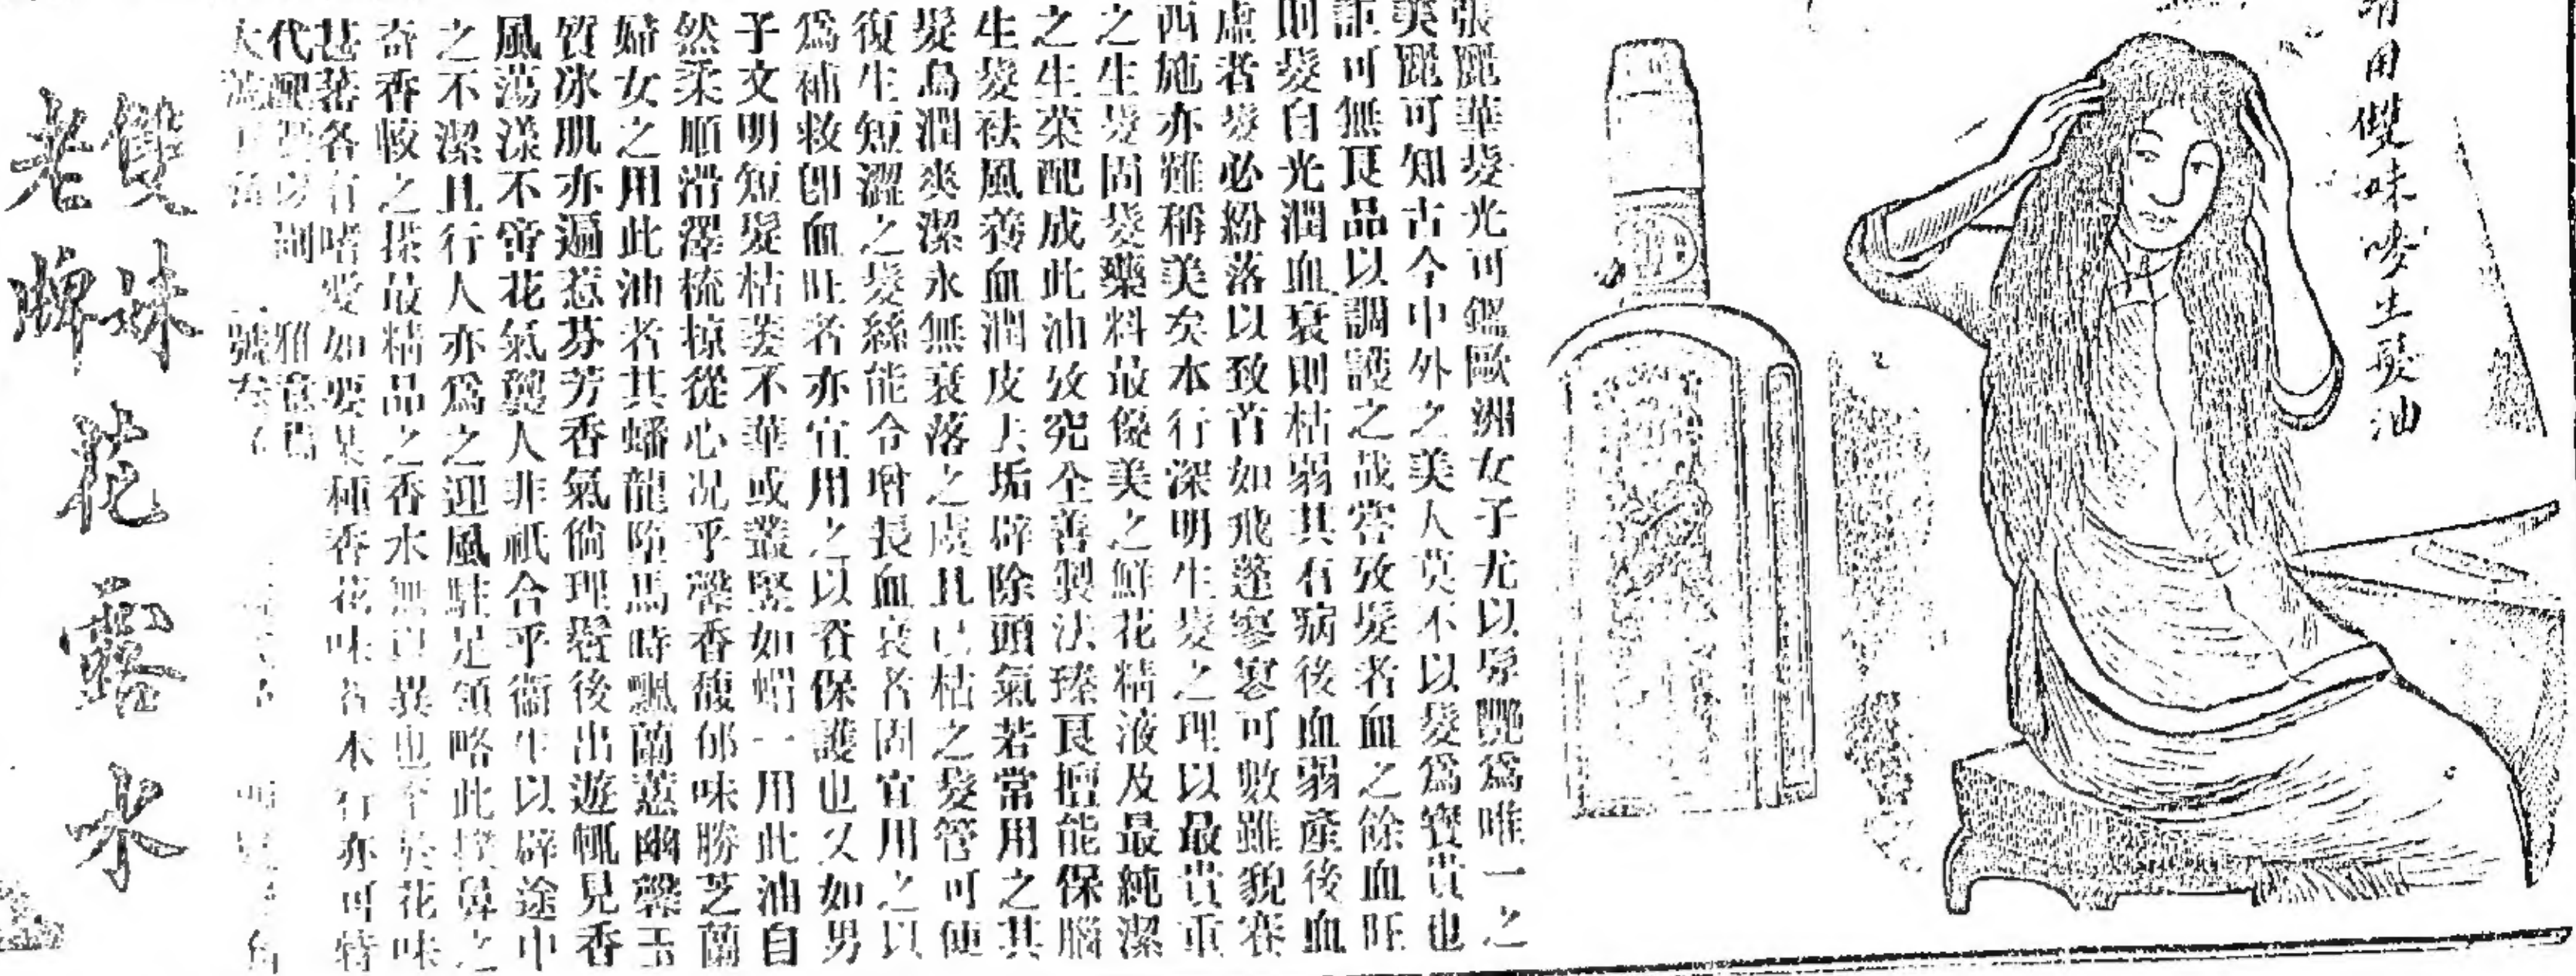 用雙妹嘜生髮油
張麗華髮光可鑑歐洲女子尤以髮艷爲唯一之
美麗可知古今中外之美人莫不以髮爲寶貴也
詎可無良品以調護之哉嘗攷髮者血之餘血旺
則髮自光潤血衰則枯弱其有病後血弱產後血
虛者髮必紛落以致首如飛蓬寥寥可數雖貌賽
西施亦難稱美矣本行深明生髮之理以最貴重
之生髮固髮藥料最優美之鮮花精液及最純潔
之生菜配成此油攷究全善製法臻良擅能保腦
生髮祛風養血潤皮去垢辟除頭氣若常用之其
髮烏潤爽潔永無衰落之虞且已枯之髮管可使
復生短澀之髮絲能令增長血衰者固宜用之以
爲補救卽血旺者亦宜用之以資保護也又如男
子文明短髮枯萎不華或叢竪如蝟一用此油自
然柔順滑澤梳掠從心况乎馨香馥郁味勝芝蘭
婦女之用此油者其蟠龍墮馬時飄蘭蕙幽馨玉
質冰肌亦遍惹芬芳香氣倘理髮後出遊輒見香
風蕩漾不啻花氣襲人非祇合乎衞生以辟途中
之不潔且行人亦爲之迎風駐足領略此撲鼻之
奇香較之搽最精品之香水無以異也至於花味
甚蕃各有嗜愛如要某種香花味者本行亦可
代配
雙妹
老牌
花露水